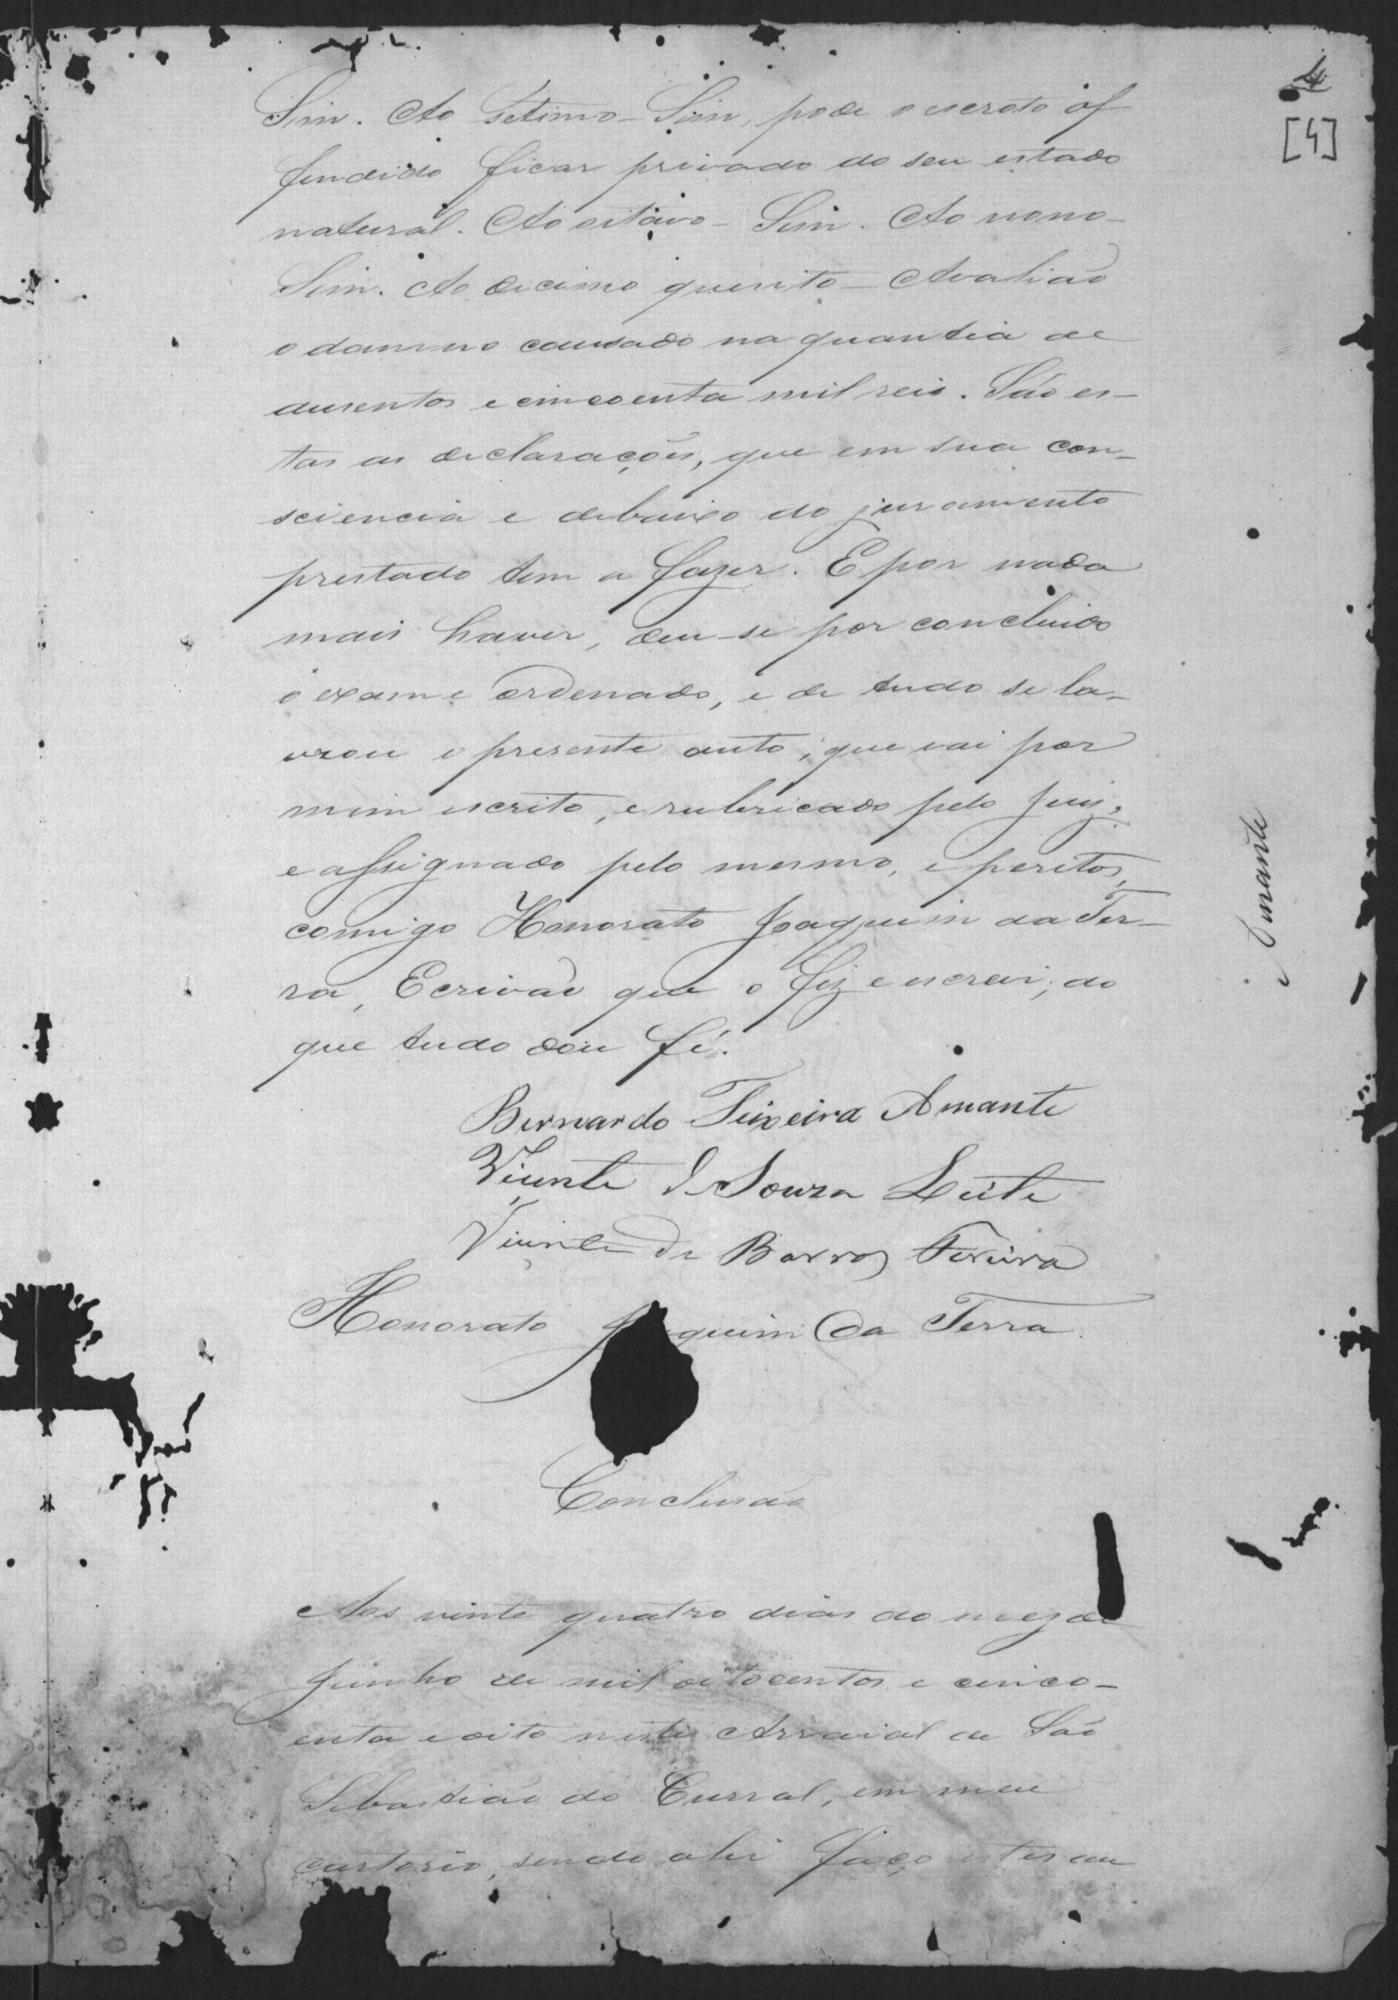 4
[4]
Sim. Ao setimo – Sim, pode o escroto of
fendido ficar privado do seu estado
natural. Ao oitavo – Sim. Ao nono –
Sim. Ao decimo quesito – Avalião
o damno causado na quantia de
dusentos e cincoenta mil reis. São es-
tas as declarações, que em sua con-
sciencia e debaixo do juramento
prestado tem a fazer. E por nada
mais haver, deu-se por concluido
o exame ordenado, e de tudo se la-
vrou o presente auto, que vai por
mim escrito, e rubricado pelo Juiz,
e assignado pelo mesmo, e peritos,
comigo Honorato Joaquim da Ter-
ra, Ecrivão que o fiz e escrevi, do
que tudo dou fé.
Amante
Bernardo Teixeira Amante
Vicente de Souza Leite
Vicente de Barros
Honorato Joaquim da Terra
Conclusão
Aos vinte quatro dias do mez de
Junho de mil oitocentos e cinco-
enta e oito neste Arraial de São
Sebastião do Curral, em meu
cartorio, sendo ahi faço estes